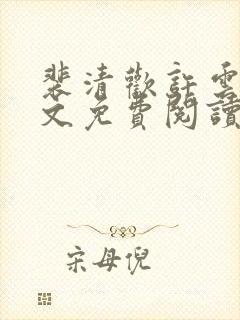 裴清歡許雲
文免費閱讀
宋母倪